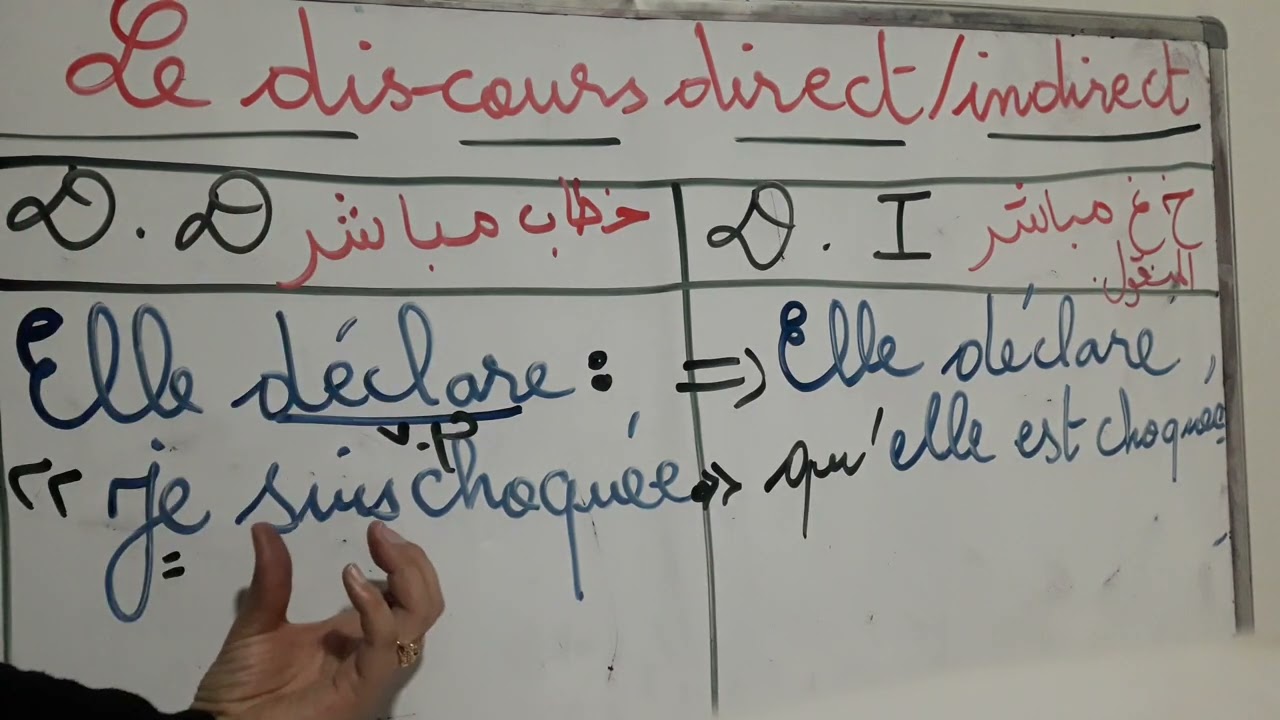 Le discours direct/indirect
D.D خطاب مباشر
D.I خ غ مباشر
المنقول.
Elle déclare :
v.p
<< je suis choquée. >>
=> Elle déclare
qu'elle est choquée